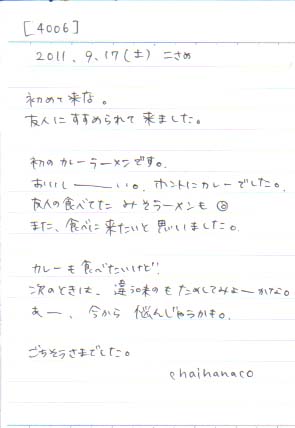 [4006]
2011. 9. 17(土) 二さめ
初めて来な。
友人にすすめられて来ました。
初のカレーラーメンです。
おいしーーい。ホントにカレーでした。
友人の食べてた みそラーメンも◎
また、食べに来たいと思いました。
カレーも食べたいけど!
次のときは、違う味のもためしてみよーかな。
あー、今から悩んじゃうかも。
ごちそうさまでした。
chaihanaco